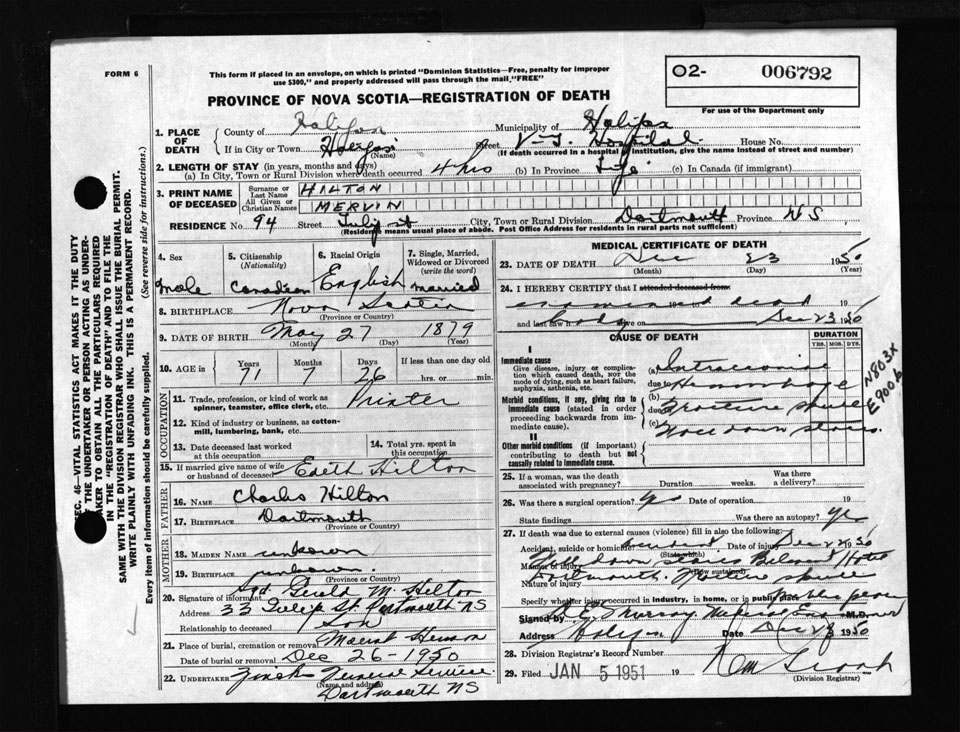 FORM 6
This form if placed in an envelope, on which is printed "Dominion Statistics—Free, penalty for improper
use $300," and properly addressed will pass through the mail "FREE"
O2- 006792
For use of the Department only
PROVINCE OF NOVA SCOTIA—REGISTRATION OF DEATH
SEC. 46—VITAL STATISTICS ACT MAKES IT THE DUTY
OF THE UNDERTAKER OR PERSON ACTING AS UNDER-
TAKER TO OBTAIN ALL THE PARTICULARS REQUIRED
IN THE "REGISTRATION OF DEATH" AND TO FILE THE
SAME WITH THE DIVISION REGISTRAR WHO SHALL ISSUE THE BURIAL PERMIT.
WRITE PLAINLY WITH UNFADING INK. THIS IS A PERMANENT RECORD.
Every item of information should be carefully supplied. (See reverse side for instructions.)
1. PLACE OF DEATH
County of Halifax Municipality of Halifax
If in City or Town Halifax (Name) Street V-G Hospital House No.
(If death occurred in a hospital or institution, give the name instead of street and number)
2. LENGTH OF STAY (in years, months and days)
(a) In City, Town or Rural Division where death occurred 4 hrs (b) In Province Life (c) In Canada (if immigrant)
3. PRINT NAME OF DECEASED
Surname or Last Name HILTON
All Given or Christian Names MERVIN
RESIDENCE No. 94 Street Tulip st City, Town or Rural Division Dartmouth Province N S
(Residence means usual place of abode. Post Office Address for residents in rural parts not sufficient)
4. Sex male
5. Citizenship (Nationality) Canadian
6. Racial Origin English
7. Single, Married, Widowed or Divorced (write the word) married
8. BIRTHPLACE Nova Scotia
(Province or Country)
9. DATE OF BIRTH May 27 1879
(Month) (Day) (Year)
10. AGE in Years Months Days If less than one day old
71 7 26 hrs. or min.
OCCUPATION
11. Trade, profession, or kind of work as spinner, teamster, office clerk, etc. Printer
12. Kind of industry or business, as cotton-mill, lumbering, bank, etc.
13. Date deceased last worked at this occupation
14. Total yrs. spent in this occupation
15. If married give name of wife or husband of deceased Edith Hilton
FATHER
16. NAME Charles Hilton
17. BIRTHPLACE Dartmouth
(Province or Country)
MOTHER
18. MAIDEN NAME unknown
19. BIRTHPLACE unknown.
(Province or Country)
20. Signature of informant Sgd Gerald M. Hilton
Address 33 Tulip St. Dartmouth NS
Relationship to deceased Son
21. Place of burial, cremation or removal Mount Hermon
Date of burial or removal Dec 26-1950
22. UNDERTAKER Zinck Funeral Service
(Name and address)
Dartmouth NS
MEDICAL CERTIFICATE OF DEATH
23. DATE OF DEATH Dec 23 1950
(Month) (Day) (Year)
24. I HEREBY CERTIFY that I attended deceased from
examined dead 19
and last saw h body alive on Dec 23 1950
CAUSE OF DEATH DURATION
YRS. MOS. DYS.
I
Immediate cause
Give disease, injury or complication which caused death, not the mode of dying, such as heart failure, asphyxia, asthenia, etc.
(a) Intracranial
due to Hemorrhage
Morbid conditions, if any, giving rise to immediate cause (stated in order proceeding backwards from immediate cause).
(b) Fracture skull
due to
(c) Fall down stairs.
II
Other morbid conditions (if important) contributing to death but not causally related to immediate cause.
N803X
E900 6
25. If a woman, was the death associated with pregnancy? Duration weeks. Was there a delivery?
26. Was there a surgical operation? Date of operation 19
State findings Was there an autopsy? yes
27. If death was due to external causes (violence) fill in also the following:
Accident, suicide or homicide accident Date of injury Dec 22 1950
(State which)
Manner of injury Fell down stairs Hotel
(How sustained)
Nature of injury Dartmouth. Fracture skull
Specify whether injury occurred in industry, in home, or in public place Public place
Signed by Murray Medical Examiner M.D.
Address Halifax Date Dec 23 1950
28. Division Registrar's Record Number
29. Filed JAN 5 1951 19
(Division Registrar)